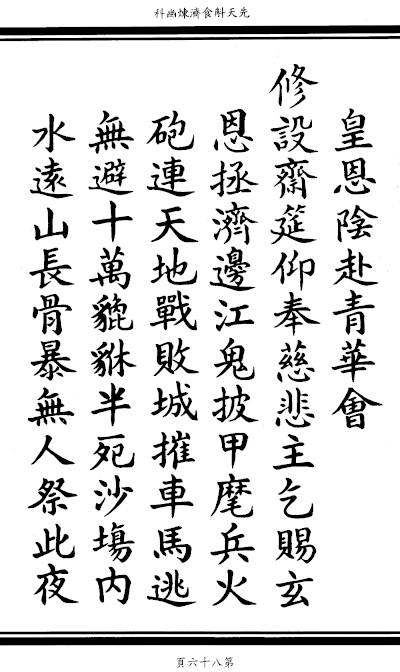 先天斛食濟煉幽科
皇恩陰赴青華會
修設齋筵仰奉慈悲主乞賜玄
恩拯濟邊江鬼披甲麾兵火
砲連天地戰敗城摧車馬逃
無避十萬貔貅半死沙塲內
水遠山長骨暴無人祭此夜
第八十六頁